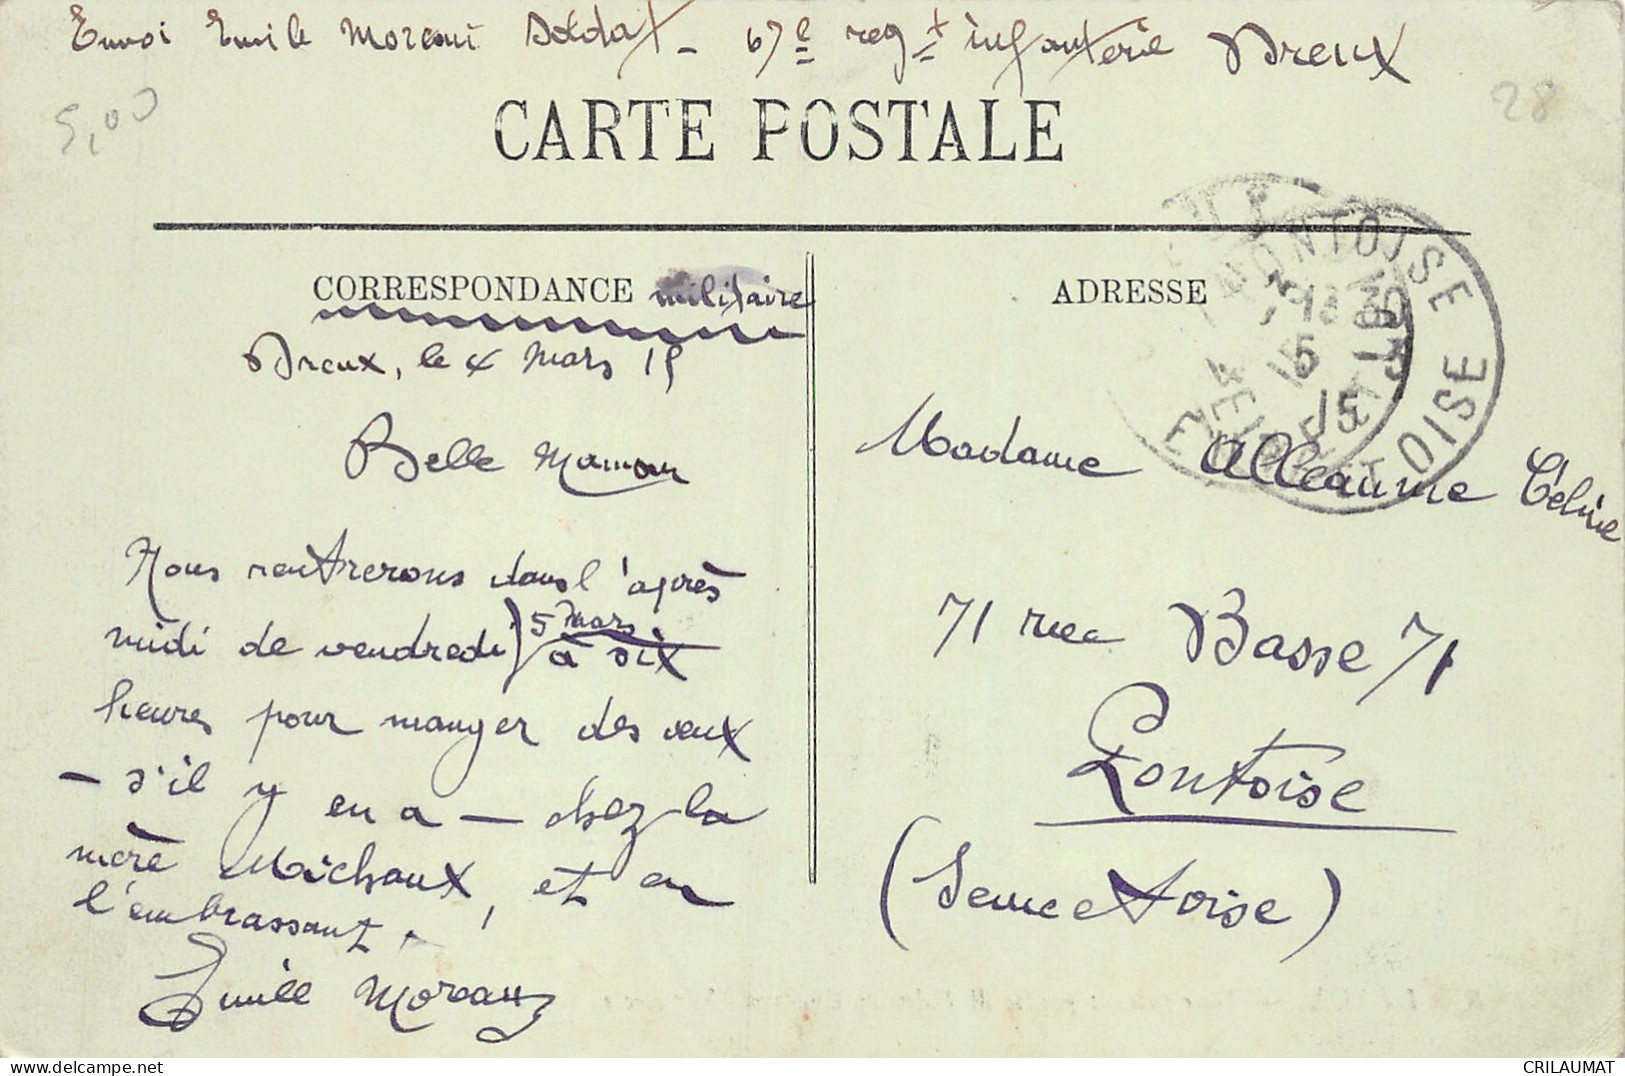 Envoi Emile Moreau Soldat - 67e regt infanterie Dreux
5,00
28
CARTE POSTALE
CORRESPONDANCE militaire
Dreux, le 4 Mars 15
Belle Maman
Nous rentrerons dans l'après
midi de vendredi) 5 Mars à six
heures pour manger des œufs
- s'il y en a - chez la
mère Michaux, et en
l'embrassant.
Emile Moreau
ADRESSE
PONTOISE
13 30
5
15
SEINE ET OISE
Madame Alleaume Céline
71 rue Basse 71
Pontoise
(Seine et Oise)
CRILAUMAT